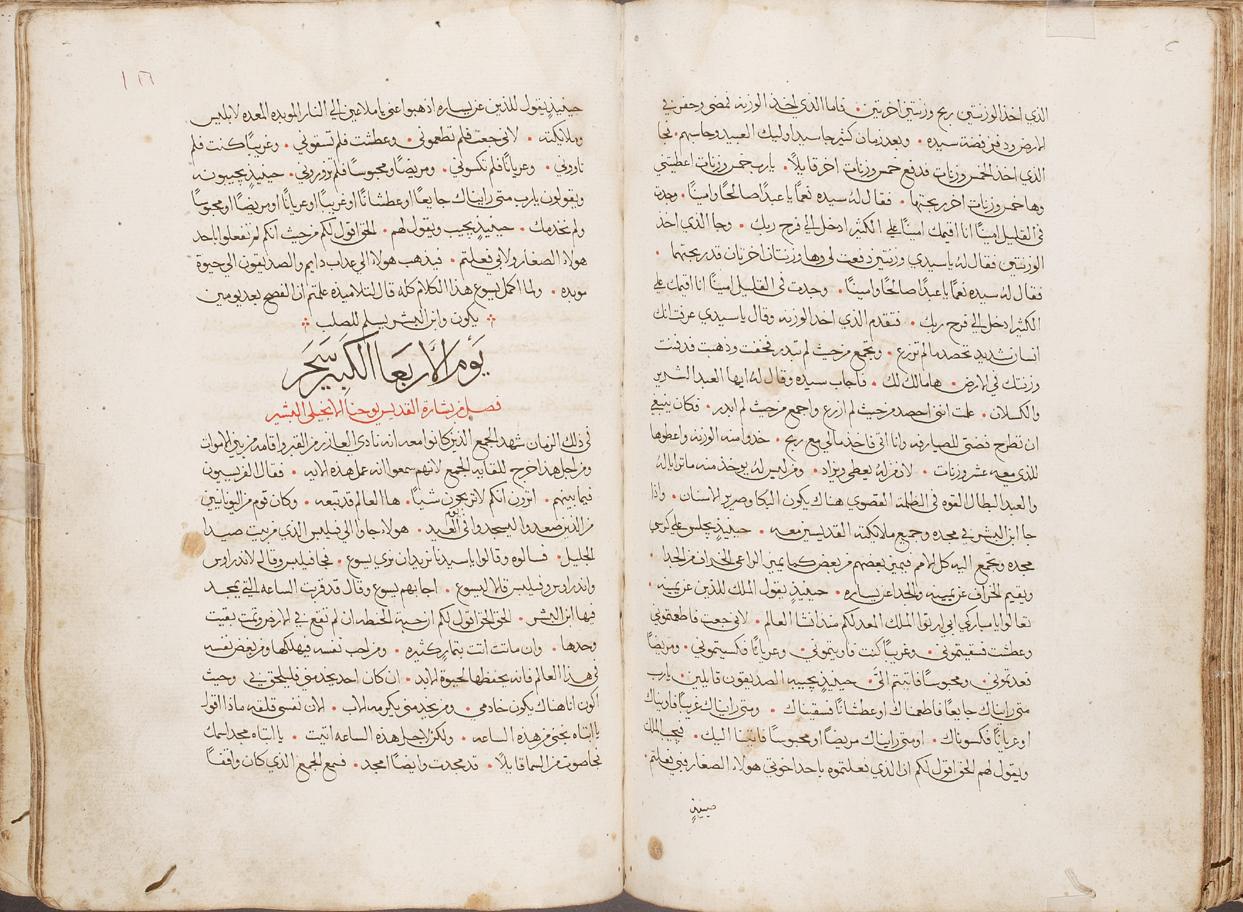 الذي اخذ الوزنتين ربح وزنتين اخرتين. فاما الذي اخذ الوزنه فمضى وحفر في
الارض ودفن فضة سيده. وبعد زمان كثير جا سيد اوليك العبيد وحاسبهم. فجا
الذي اخذ الخمس وزنات فدفع خمس وزنات اخر قايلًا. يارب خمس وزنات اعطيتني
وها خمس وزنات اخر ربحتها. فقال له سيده نعمًا يا عبدًا صالحًا وامينًا. وجدت
في القليل امينًا انا اقيمك امينًا على الكثير ادخل الى فرح ربك. وجا الذي اخذ
الوزنتين فقال له يا سيدي وزنتين دفعت لي وها وزنتان اخرتان قد ربحتهما.
فقال له سيده نعمًا يا عبدًا صالحًا وامينًا. وجدت في القليل امينًا انا اقيمك على
الكثير ادخل الى فرح ربك. فتقدم الذي اخد الوزنه وقال يا سيدي عرفت انك
انسان شديد تحصد ما لم تزرع. وتجمع من حيث لم تبدر فخفت وذهبت فدفنت
وزنتك في الارض. ها مالك لك. فاجاب سيده وقال له ايها العبد الشرير
والكسلان. علمت انني احصد من حيث لم ازرع واجمع من حيث لم ابدر. فكان ينبغي
ان تطرح فضتي للصيارفه وانا اتي فاخذ مالي مع ربح. خدوا منه الوزنه واعطوها
للذي معه عشر وزنات. لان من له يعطى ويزاد. ومن ليس له يوخذ منه ما تراياله
والعبد البطال القوه في الظلمه القصوى هناك يكون البكا وصرير الاسنان. واذا
جا ابن البشر في مجده وجميع ملايكته القديسين معه. حينيذٍ يجلس على كرسي
مجده وتجمع اليه كل الامم فيميز بعضهم من بعض كما يميز الراعي الخراف من الجدا.
ويقيم الخراف عن يمينه والجدا عن يساره. حينيذٍ يقول الملك للذين عن يمينه.
تعالوا يا مباركي ابي ارثوا الملك المعد لكم منذ انشا العالم. لاني جعت فاطعمتوني
وعطشت فسقيتموني. وغريبًا كنت فاويتموني. وعريانًا فكسيتموني. ومريضًا
فعدتموني. ومحبوسًا فاتيتم اليَّ. حينيذٍ يجيبه الصديقون قايلين. يارب
متى رايناك جايعًا فاطعمناك او عطشانًا فسقيناك. ومتى رايناك غريبًا فاويناك
او عريانًا فكسوناك. او متى رايناك مريضًا او محبوسًا فاتينا اليك. فيجيب الملك
ويقول لهم الحق اقول لكم ان الذي فعلتموه باحد اخوتي هولا الصغار فبي فعلتم.
حينيذٍ
حينيذٍ يقول للذين عن يساره اذهبوا عني يا ملاعين الى النار الموبده المعده لابليس
وملايكته. لاني جعت فلم تطعموني. وعطشت فلم تسقوني. وغريبًا كنت فلم
تاووني. وعريانًا فلم تكسوني. ومريضًا ومحبوسًا فلم تزوروني. حينيذٍ يجيبونه
ويقولون يارب متى رايناك جايعًا او عطشانًا او غريبًا او عريانًا او مريضًا او محبوسًا
ولم نخدمك. حينيذٍ يجيب ويقول لهم. الحق اقول لكم من حيث انكم لم تفعلوا باحد
هولا الصغار ولا بي فعلتم. فيذهب هولا الى عذاب دايم والصديقون الى حيوة
موبده. ولما اكمل يسوع هذا الكلام كله قال لتلاميذه علمتم ان الفصح بعد يومين
يكون وابن البشر يسلم للصلب
يَوْم الأَربَعا الكَبِير سَحَر
فصل من بشارة القديس يوحنا الانجيلي البشير
في ذلك الزمان شهد الجمع الذين كانوا معه انه نادى العازر من القبر واقامه من بين الاموات
ومن اجل هذا خرج للقايه الجمع لانهم سمعوا انه عمل هذه الايه. فقال الفريسيون
فيما بينهم. اترون انكم لا تربحون شيًا. ها العالم قد تبعه. وكان قوم من اليونانيين
من الذين صعدوا اليسجدوا في يوم العيد. هولا جاوا الى فيلبس الذي من بيت صيدا
الجليل. فسالوه وقالوا يا سيد نا نريد ان نرى يسوع. فجا فيلبس وقال لاندراوس
واندراوس وفيلبس قالا ليسوع. اجابهم يسوع وقال قد قربت الساعه التي يمجد
فيها ابن البشر. الحق الحق اقول لكم ان حبة الحنطه ان لم تقع في الارض وتمت بقيت
وحدها. وان ماتت اتت بثمارٍ كثيره. ومن احب نفسه فيهلكها ومن بغض نفسه
في هذا العالم فانه يحفظها لحيوة الابد. ان كان احد يخدمني فليلحق بي. وحيث
اكون انا هناك يكون خادمي. ومن يخدمني يكرمه الاب. الان نفسي قلقه ماذا اقول
يا ابتاه نجني من هذه الساعه. ولكن لاجل هذه الساعه اتيت. يا ابتاه مجد اسمك
فجا صوت من السما قايلًا. قد مجدت وايضًا امجد. فسمع الجمع الذي كان واقفًا